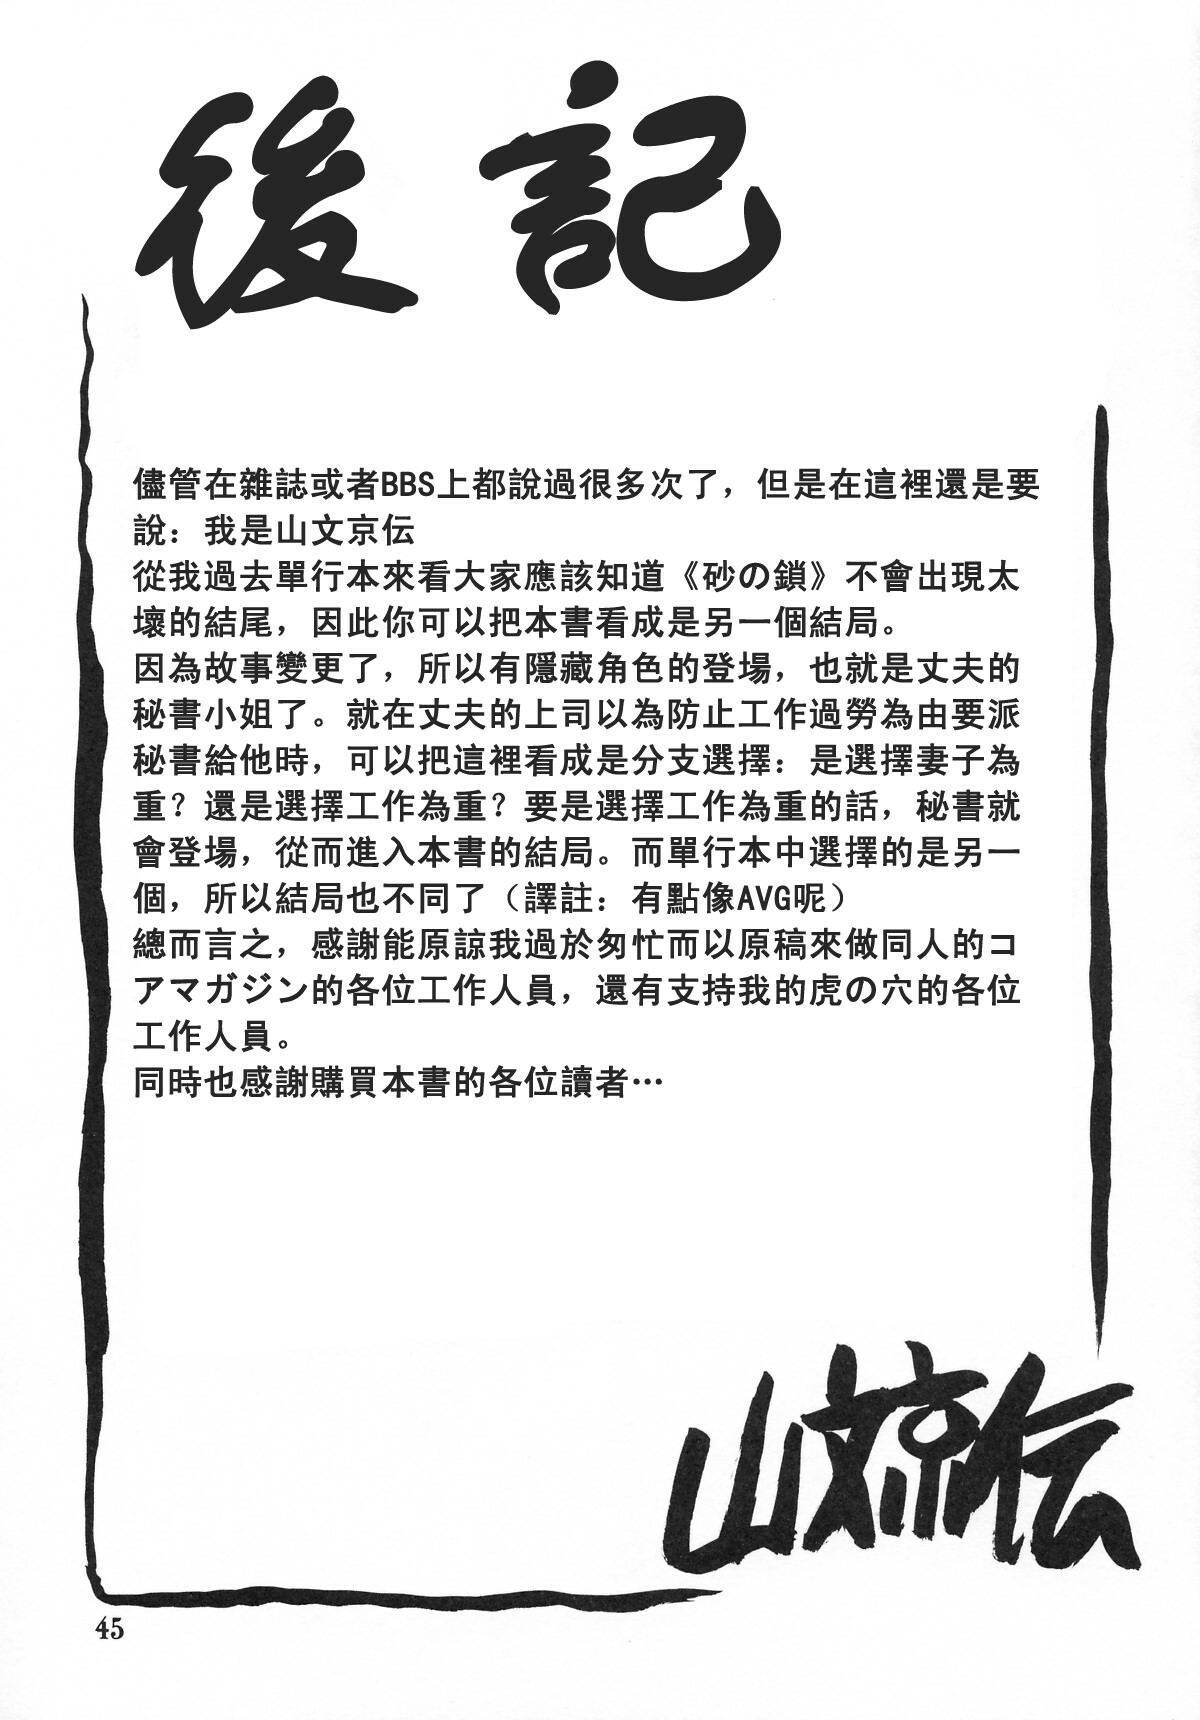 後記
儘管在雜誌或者BBS上都說過很多次了，但是在這裡還是要
說：我是山文京伝
從我過去單行本來看大家應該知道《砂の鎖》不會出現太
壞的結尾，因此你可以把本書看成是另一個結局。
因為故事變更了，所以有隱藏角色的登場，也就是丈夫的
秘書小姐了。就在丈夫的上司以為防止工作過勞為由要派
秘書給他時，可以把這裡看成是分支選擇：是選擇妻子為
重？還是選擇工作為重？要是選擇工作為重的話，秘書就
會登場，從而進入本書的結局。而單行本中選擇的是另一
個，所以結局也不同了（譯註：有點像AVG呢）
總而言之，感謝能原諒我過於匆忙而以原稿來做同人的コ
アマガジン的各位工作人員，還有支持我的虎の穴的各位
工作人員。
同時也感謝購買本書的各位讀者…
山文京伝
45